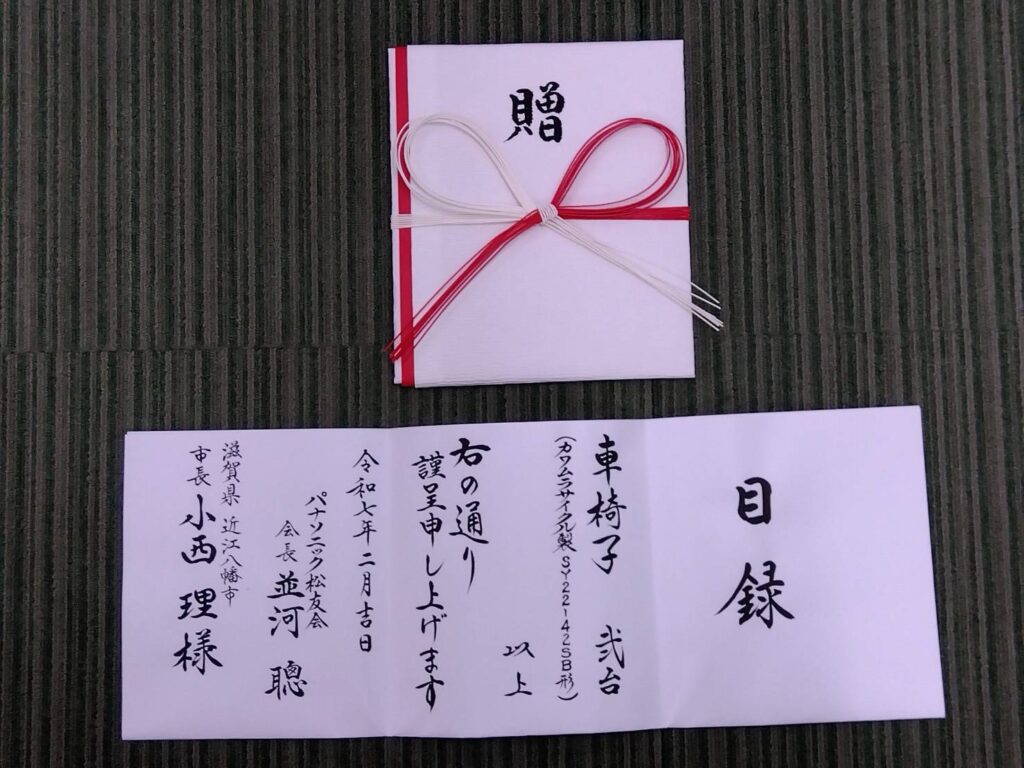 贈
目録
車椅子 弐台
(カワムラサイクル製 SY22-42SB形)
以上
右の通り
謹呈申し上げます
令和七年二月吉日
パナソニック松友会
会長 並河 聰
滋賀県 近江八幡市
市長 小西 理様